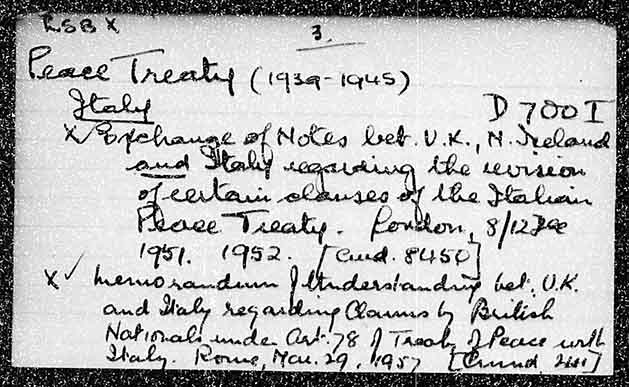 RSB X
3.
Peace Treaty (1939-1945)
Italy
D 700 I
X Exchange of Notes bet. U.K., N. Ireland
and Italy regarding the revision
of certain clauses of the Italian
Peace Treaty. London, 8/12 Dec
1951. 1952. [Cmd. 8450]
X ✓ Memorandum of Understanding bet. U.K.
and Italy regarding Claims by British
Nationals under Art. 78 of Treaty of Peace with
Italy. Rome, Mar. 29, 1957 [Cmnd.